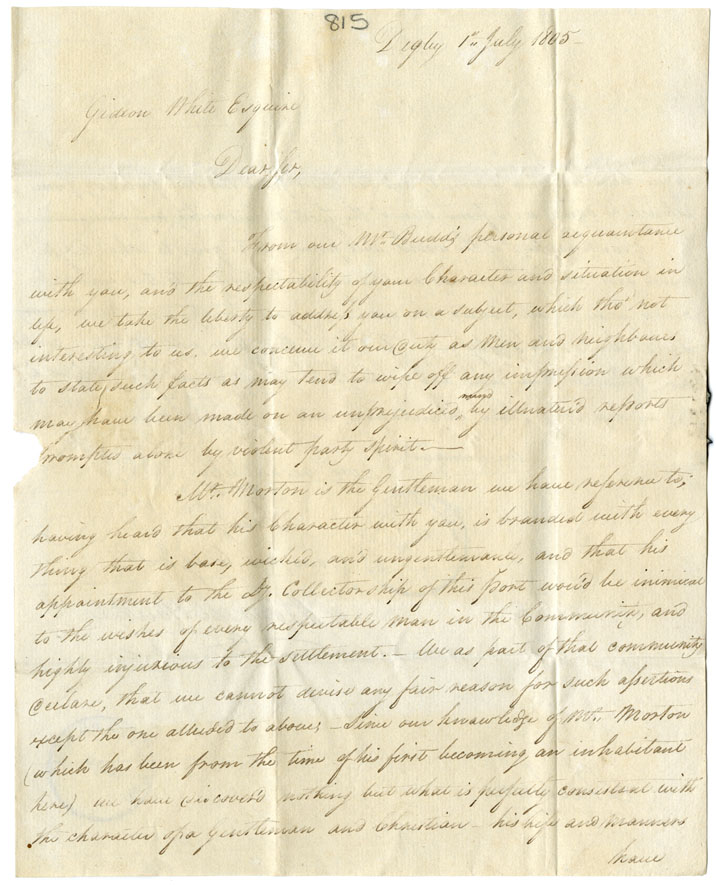 815
Digby 1st July 1805–
Gideon White Esquire
Dear Sir,
From our Mr. Budd's personal acquaintance
with you, and the respectability of your Character and situation in
life, we take the liberty to address you on a subject, which tho' not
interesting to us. we conceive it our duty as Men and Neighbours
to state such facts as may tend to wipe off any impression which
may have been made on an unprejudiced mind by illnatur'd reports
prompted alone by violent party spirit.—
Mr. Morton is the Gentleman we have reference to;
having heard that his Character with you, is branded with every
thing that is base, wicked, and ungentlemanlike, and that his
appointment to the Dy. Collectorship of this Port would be inimical
to the wishes of every respectable man in the Community, and
highly injurious to the settlement.– We as part of that community
declare, that we cannot devise any fair reason for such assertions
except the one alluded to above; –Since our knowledge of Mr. Morton
(which has been from the time of his first becoming an inhabitant
here) we have discover'd nothing but what is perfectly consistent with
the character of a Gentleman and Christian– his life and manners
have